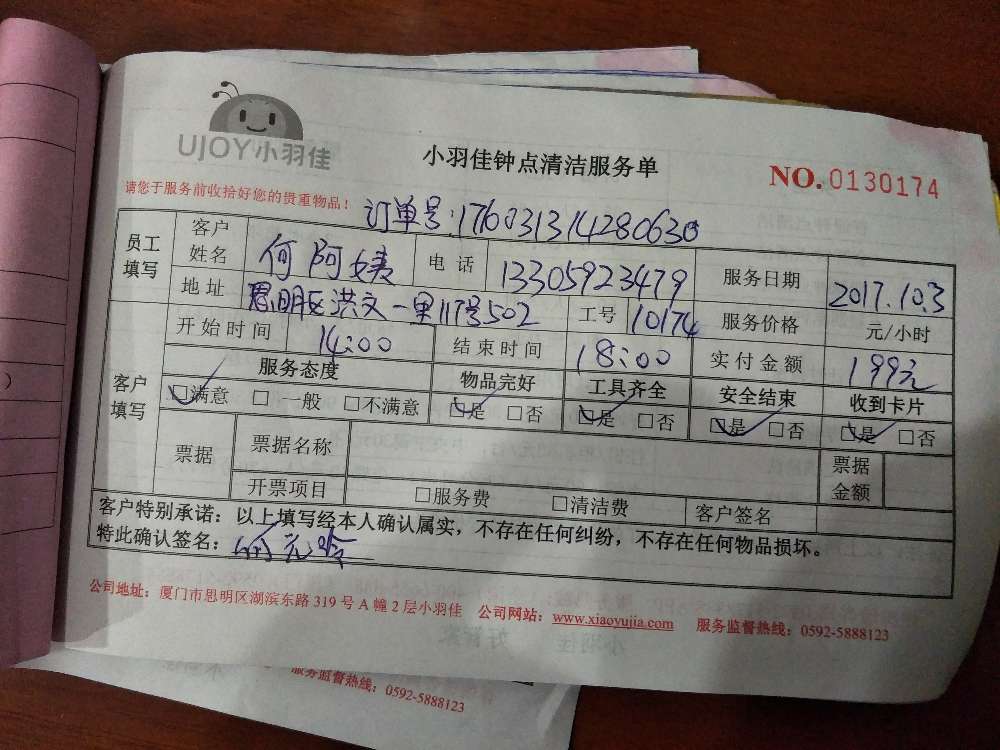 UJOY小羽佳
小羽佳钟点清洁服务单
NO. 0130174
请您于服务前收拾好您的贵重物品!
订单号:176031314280630
员工填写 客户姓名 何阿姨 电话 13305923479 服务日期 2017.10.3
地址 思明区洪文一里117号502 工号 10174 服务价格 元/小时
开始时间 14:00 结束时间 18:00 实付金额 199元
客户填写 服务态度 物品完好 工具齐全 安全结束 收到卡片
□满意 □一般 □不满意 □是 □否 □是 □否 □是 □否 □是 □否
票据 票据名称 票据金额
开票项目 □服务费 □清洁费 客户签名
客户特别承诺:以上填写经本人确认属实,不存在任何纠纷,不存在任何物品损坏。
特此确认签名:何元
公司地址:厦门市思明区湖滨东路319号A幢2层小羽佳 公司网站:www.xiaoyujia.com 服务监督热线:0592-5888123
服务监督热线:0592-5888123